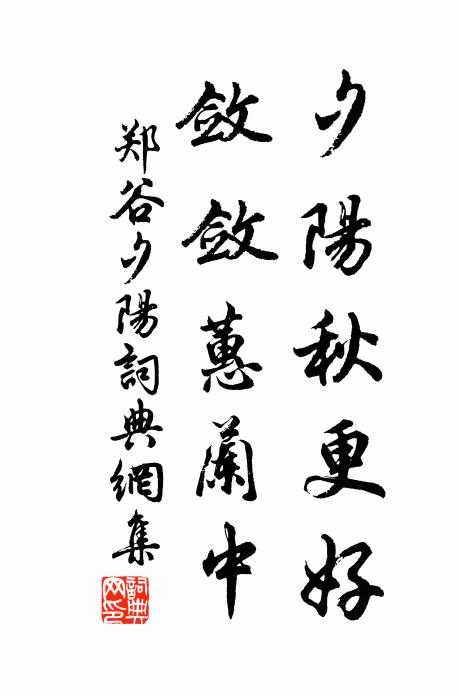 夕陽秋更好
斂斂蕙蘭中
郑谷夕陽詞典網集
詞典網印